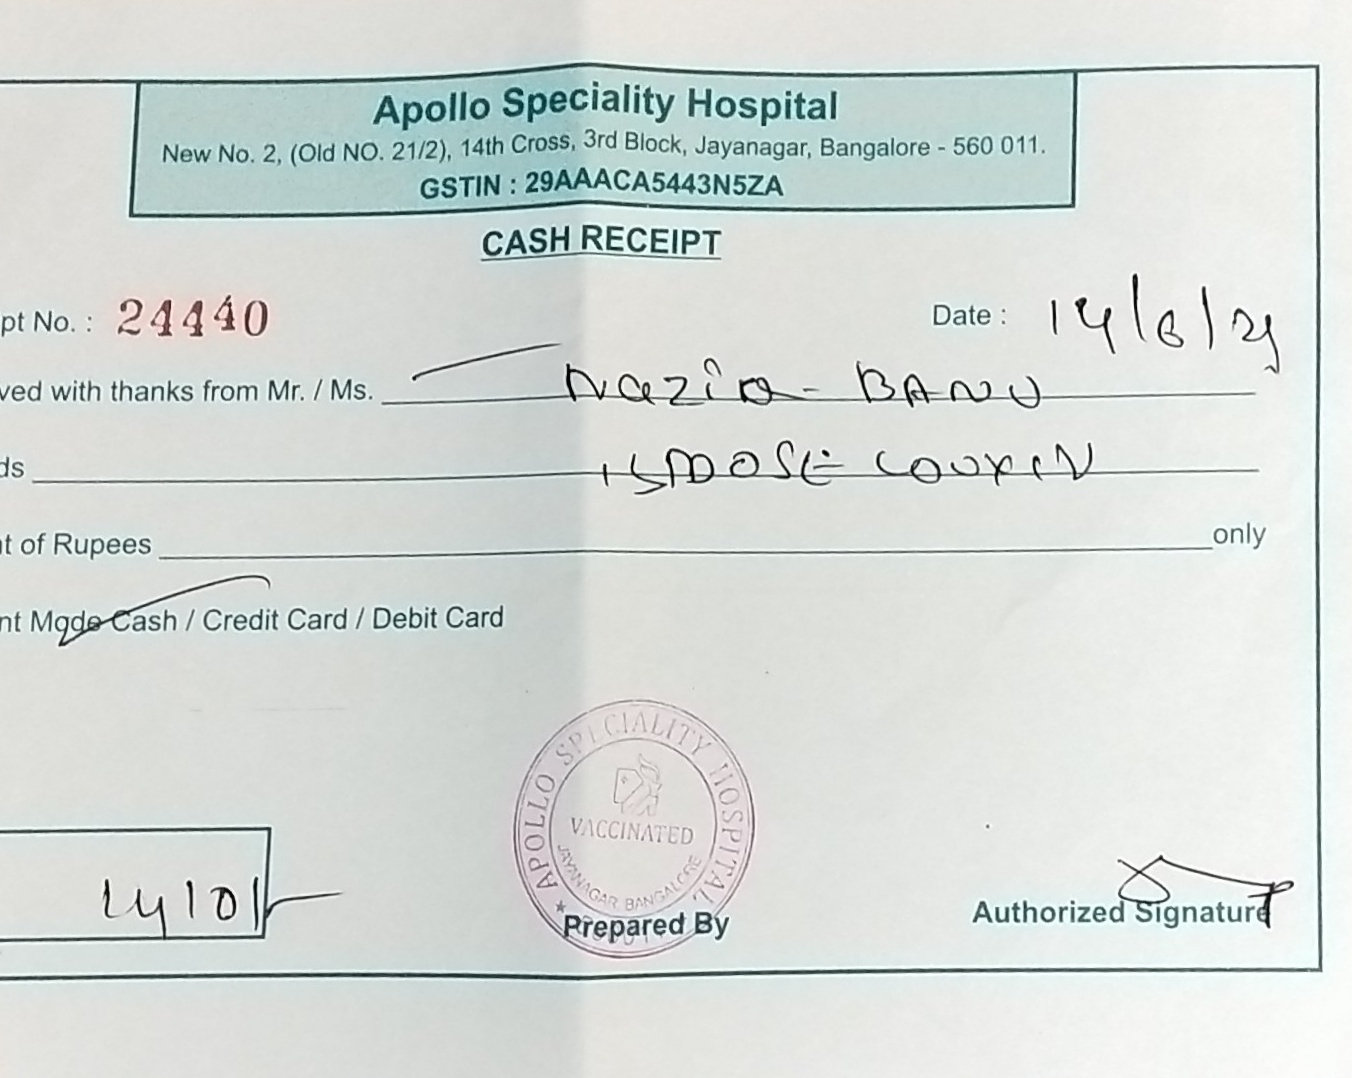 Apollo Speciality Hospital
New No. 2, (Old NO. 21/2), 14th Cross, 3rd Block, Jayanagar, Bangalore - 560 011.
GSTIN : 29AAACA5443N5ZA
CASH RECEIPT
pt No. : 24440 Date : 14/6/21
ved with thanks from Mr. / Ms. Nazia - BANU
ds DOSE
t of Rupees only
nt Mode Cash / Credit Card / Debit Card
APOLLO SPECIALITY HOSPITAL
VACCINATED
JAYANAGAR BANGALORE
1410/-
Prepared By Authorized Signature